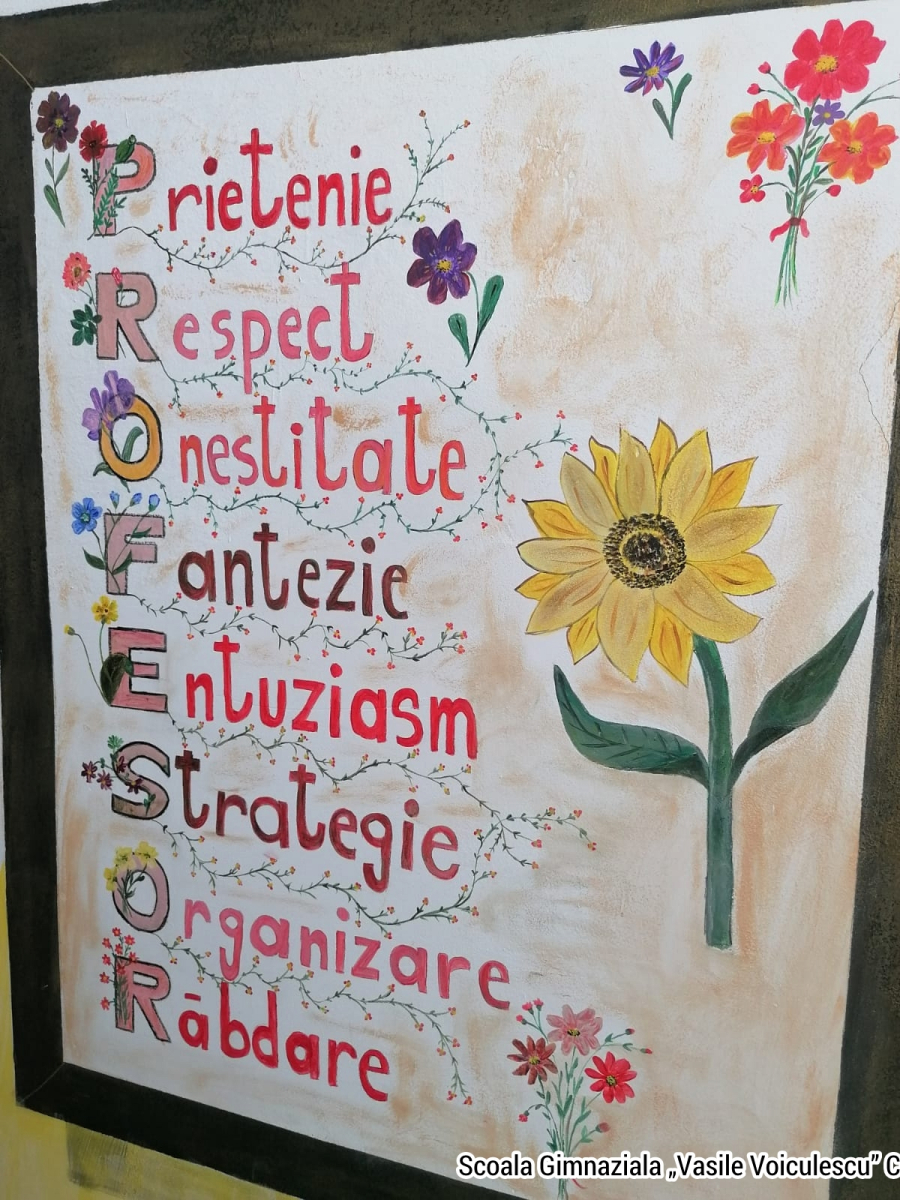 Prietenie
Respect
Onestitate
Fantezie
Entuziasm
Strategie
Organizare
Răbdare
Scoala Gimnaziala „Vasile Voiculescu” C